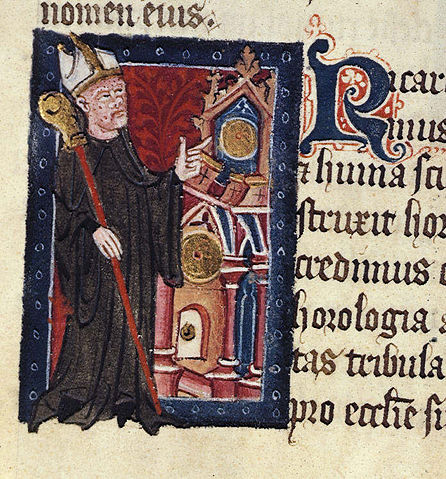 nomen eius.
Ricar
struxit hor
credimus
horologia a
tas tribula
pro ecclie si